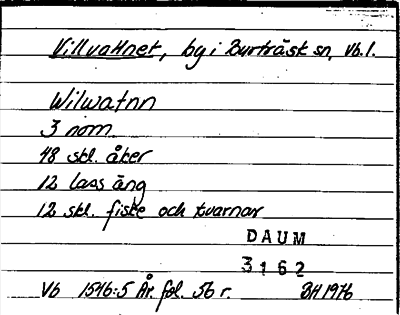 Villvattnet, by i Burträsk sn, Vb. l.
Wilwatnn
3 nom
48 skl. åker
12 lass äng
12 skl. fiske och kvarnar
DAUM
3162
Vb 1546:5 År. fol. 56 r. BH 1976